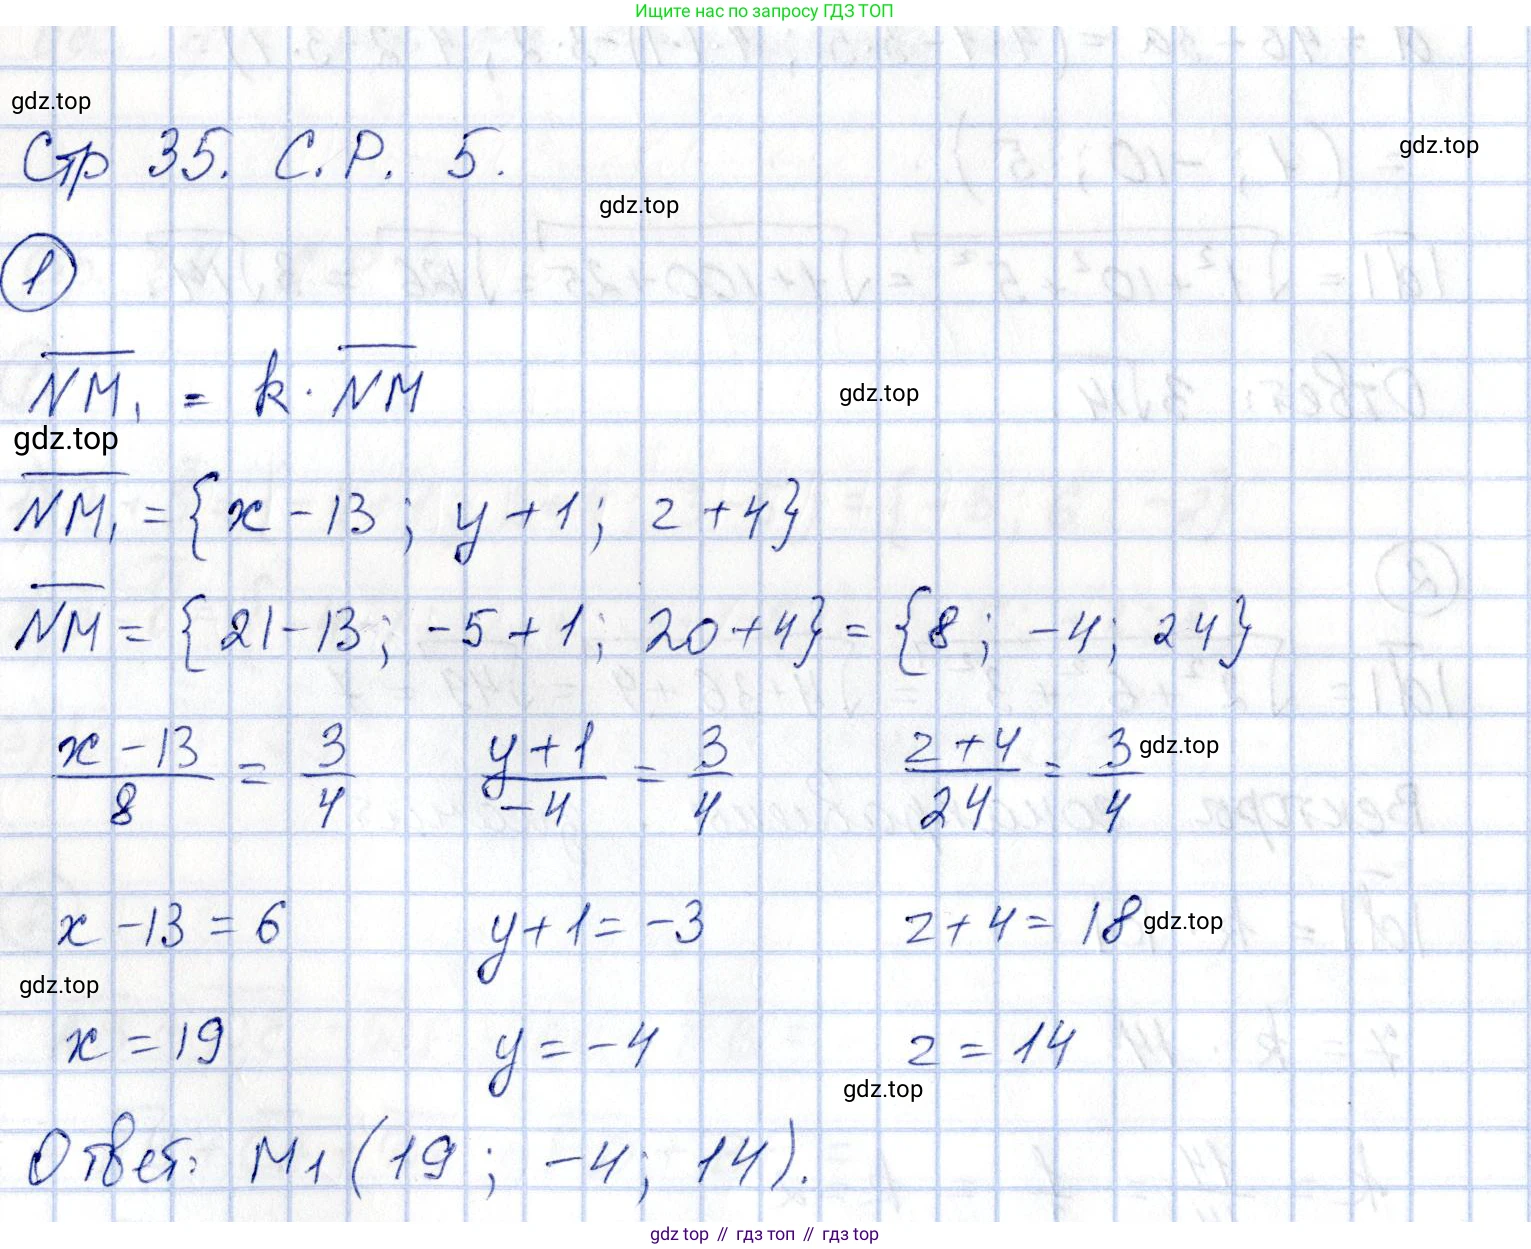 Ищите нас по запросу ГДЗ ТОП
gdz.top
Стр 35. С.Р. 5.
gdz.top
gdz.top
1
NM₁ = k · NM
gdz.top
gdz.top
NM₁ = {x - 13 ; y + 1 ; z + 4}
NM = {21 - 13 ; -5 + 1 ; 20 + 4} = {8 ; -4 ; 24}
(x - 13)/8 = 3/4 (y + 1)/(-4) = 3/4 (z + 4)/24 = 3/4 gdz.top
x - 13 = 6 y + 1 = -3 z + 4 = 18 gdz.top
gdz.top
x = 19 y = -4 z = 14
gdz.top
Ответ: M₁ (19 ; -4 ; 14).
gdz top // гдз топ // гдз top